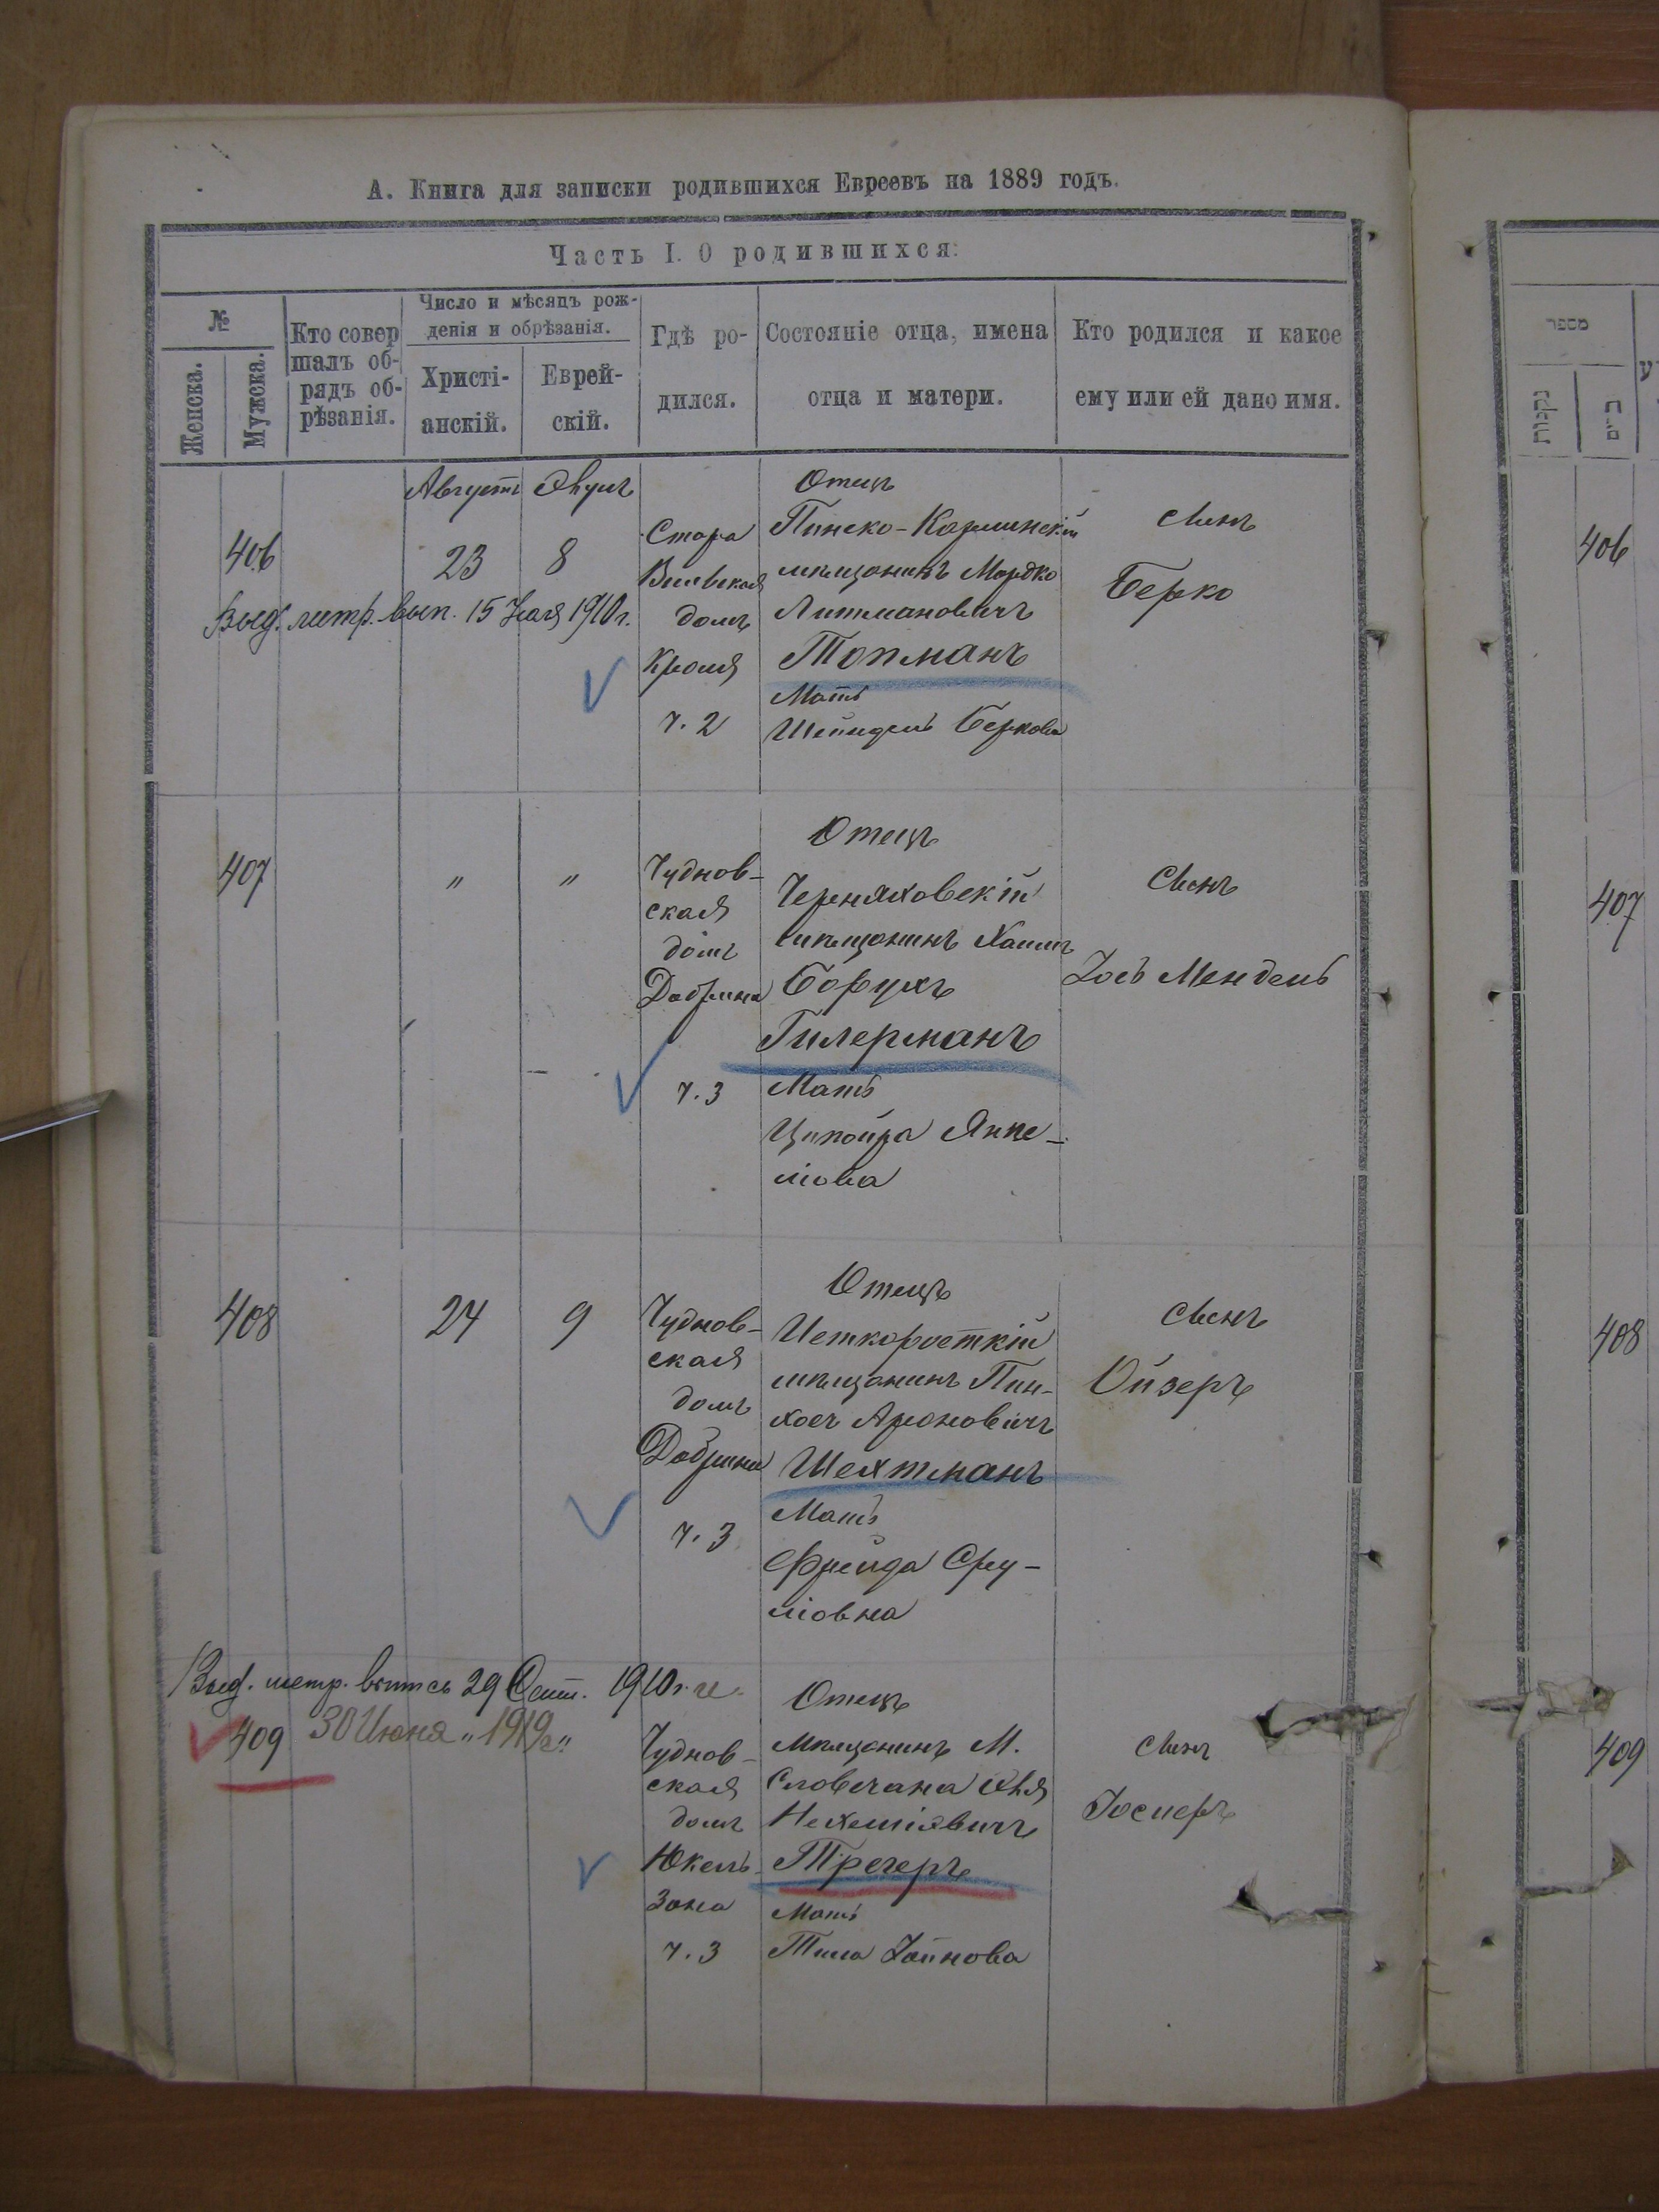 А. Книга для записки родившихся Евреевъ на 1889 годъ.
Часть I. О родившихся.
№
Женска.
Мужска.
Кто совер
шалъ об-
рядъ об-
рѣзанія.
Число и мѣсяцъ рож-
денія и обрѣзанія.
Христі-
анскій.
Еврей-
скій.
Гдѣ ро-
дился.
Состояніе отца, имена
отца и матери.
Кто родился и какое
ему или ей дано имя.
406
Августъ
23
8
Выд. метр. вып. 15 Мая 1910 г.
Старо
Вильская
домъ
Кроля
ч. 2
Отецъ
Пинско-Карлинскій
мѣщанинъ Мордко
Литмановичъ
Топманъ
Мать
Шейндель Беркова
Сынъ
Берко
407
"
"
Чуднов-
ская
домъ
Добрина
ч. 3
Отецъ
Черняховскій
мѣщанинъ Хаимъ
Борухъ
Гилерманъ
Мать
Ципойра Янке-
лiова
Сынъ
Іось Мендель
408
24
9
Чуднов-
ская
домъ
Добрина
ч. 3
Отецъ
мѣщанинъ Пин-
хосъ Ароновичъ
Шехтманъ
Мать
Фрейда Сру-
ліовна
Сынъ
Ойзеръ
Выд. метр. выпись 29 Сент. 1910 г.
409
30 Июня „ 1919 „
Чуднов-
ская
домъ
Юкель-
зона
ч. 3
Отецъ
Мѣщанинъ М.
Словечана
Нехеміевичъ
Трегеръ
Мать
Сынъ
מספר
נקבות
זכרים
406
407
408
409